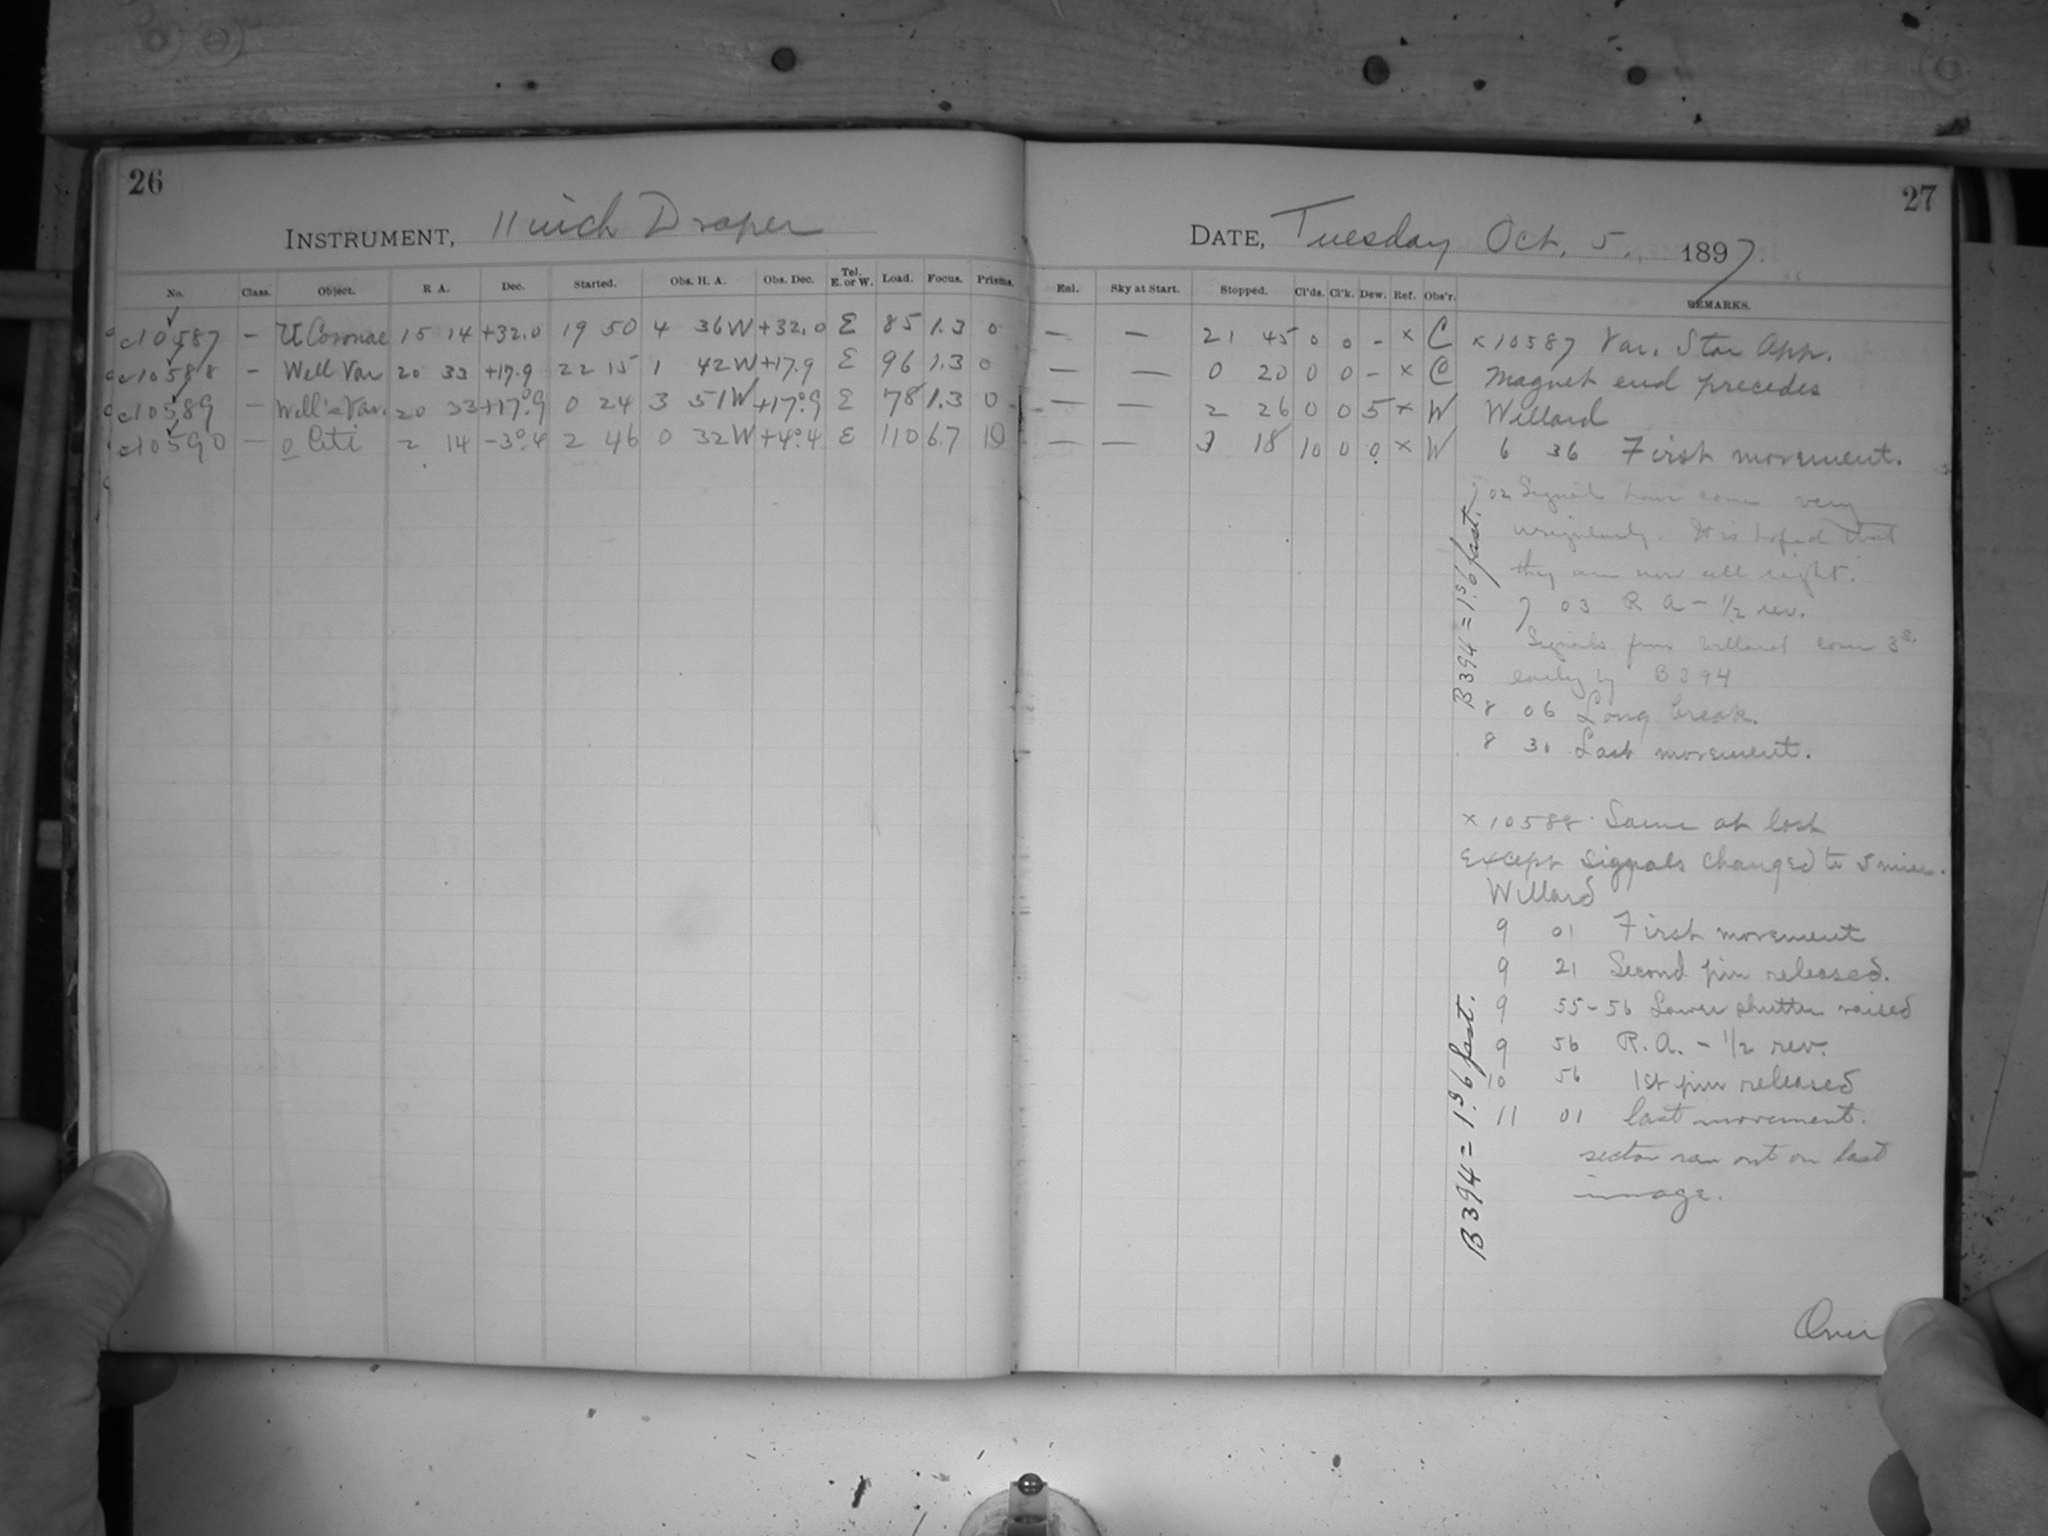 26
INSTRUMENT, 11 inch Draper
No. Class. Object. R A. Dec. Started. Obs. H. A. Obs. Dec. Tel. E. or W. Load. Focus. Prisms.
c10587 — U Coronae 15 14 +32.0 19 50 4 36W +32.0 E 85 1.3 0
c10588 — Well Var 20 33 +17.9 22 15 1 42W +17.9 E 96 1.3 0
c10589 — Well's Var. 20 33 +17°.9 0 24 3 51W +17°.9 E 78 1.3 0
c10590 — o Ceti 2 14 -3°.4 2 46 0 32W +4°.4 E 110 6.7
27
DATE, Tuesday Oct. 5. 1897.
Enl. Sky at Start. Stopped. Cl'ds. Cl'k. Dew. Ref. Obs'r. REMARKS.
— — 21 45 0 0 - × C
— — 0 20 0 0 - × C
— — 2 26 0 0 5 × W
— — 3 18 10 0 0 × W
×10587 Var. Star App.
Magnet end precedes
Willard
6 36 First movement.
7 02 Signals have come very
irregularly. It is hoped that
they are now all right.
7 03 R A - 1/2 rev.
Signals from Willard come 3s.
early by B394
8 06 Long break.
8 30 Last movement.
B394 = 1s.6 fast.
×10588 Same as last
Except signals changed to 5 min.
Willard
9 01 First movement
9 21 Second pin released.
9 55-56 Lower shutter raised
9 56 R.A. - 1/2 rev.
10 56 1st pin released
11 01 last movement.
sector ran out on last
image.
B394 = 1s.6 fast.
Over